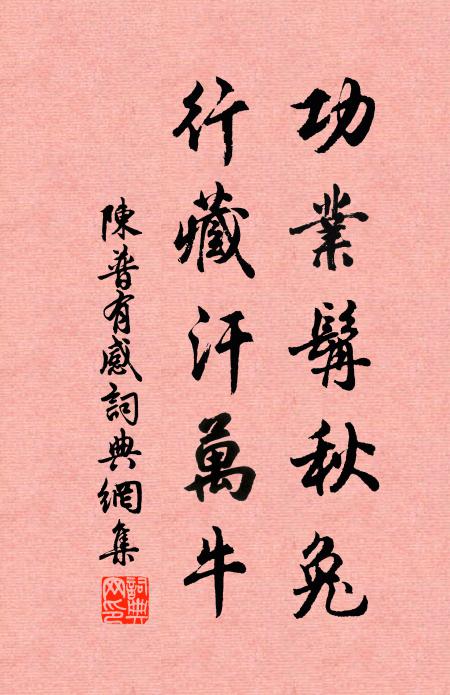 功業秋兔
行藏汗萬牛
陳普有感詞典網集
詞典
网印